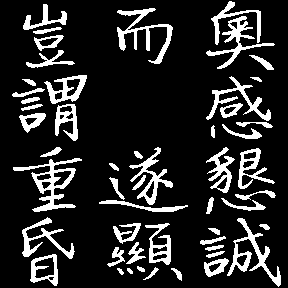 奧感懇誠
而 遂顯
豈謂重昏